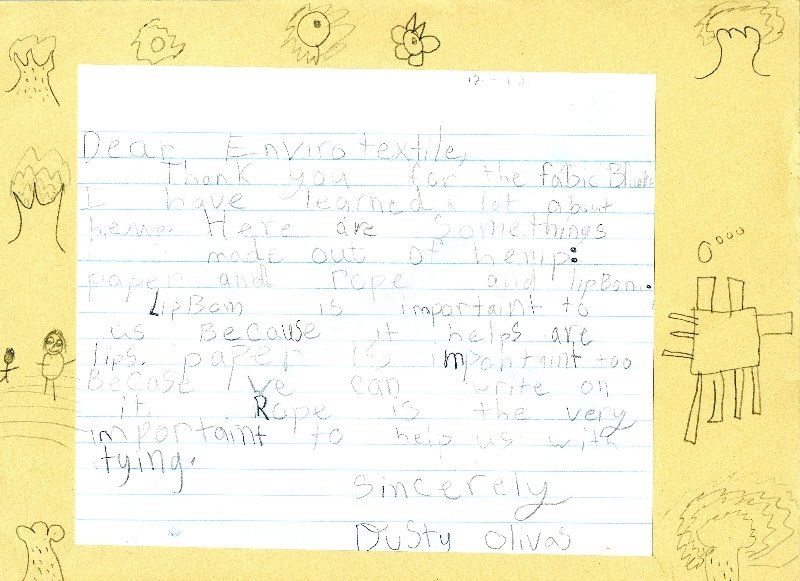 12-
Dear Envirotextile,
Thank you for the fabic
I have learned a lot about
hemp. Here are Somethings
made out of hemp:
paper and rope and lipBam.
LipBam is important to
us Because it helps are
lips. paper is important too
Becase We can write on
it. Rope is the very
important to help us with
tying.
Sincerely
Dusty Olivas